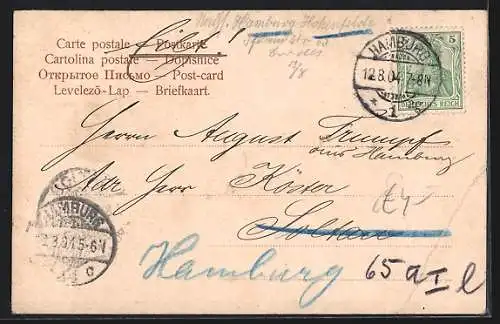 Carte postale — Postkarte
Cartolina postale — Dopisnice
Открытое Письмо — Post-card
Levelező-Lap — Briefkaart.
Eilt!
Hamburg Hohenfelde
HAMBURG
12.8.04. 7-8N
1
5
DEUTSCHES REICH
Herrn August Trumpf
aus Hamburg
Adr Herr Köster
Soltau
HAMBURG
Hamburg 65 a I l